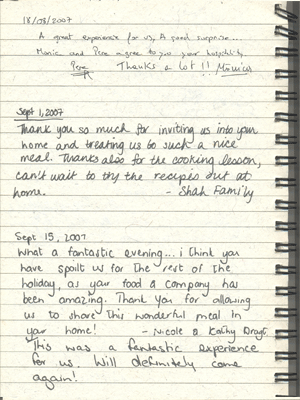 18/08/2007
A great experience for us, A good surprise...
Monic and Pere agree to you your hospitality.
Pere Thanks a lot!! Mònica
Sept 1, 2007
Thank you so much for inviting us into your
home and treating us to such a nice
meal. Thanks also for the cooking lesson,
can't wait to try the recipes out at
home. - Shah Family
Sept 15, 2007
What a fantastic evening... i think you
have spoilt us for the rest of the
holiday, as your food & company has
been amazing. Thank you for allowing
us to share this wonderful meal in
your home! - Nicole & Kathy
This was a fantastic experience
for us. Will definitely come
again!